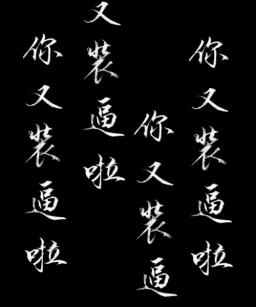 你又装逼啦
又装逼啦
你又装逼
你又装逼啦